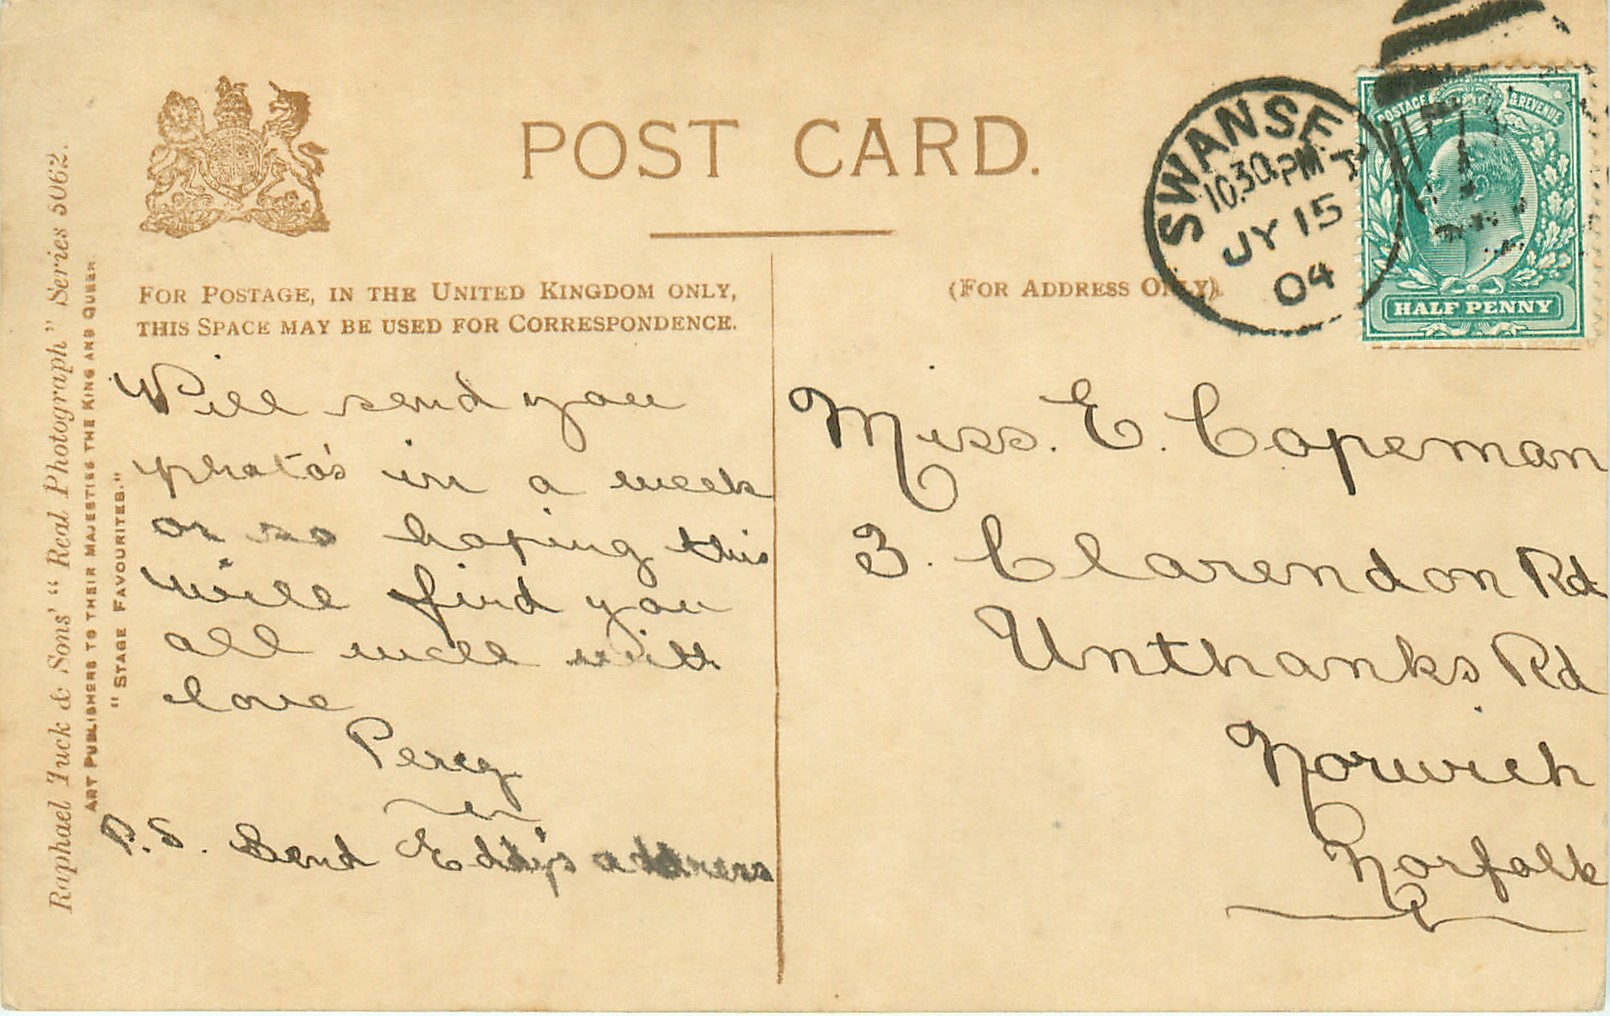 POST CARD.
FOR POSTAGE, IN THE UNITED KINGDOM ONLY,
THIS SPACE MAY BE USED FOR CORRESPONDENCE.
(FOR ADDRESS ONLY).
Raphael Tuck & Sons' "Real Photograph" Series 5062.
ART PUBLISHERS TO THEIR MAJESTIES THE KING AND QUEEN.
"STAGE FAVOURITES."
SWANSE
10.30.PM
JY 15
04
POSTAGE & REVENUE
HALF PENNY
Will send you
photo's in a week
or so hoping this
will find you
all well with
love
Percy
P.S. Send Eddy's address
Miss. E. Copeman
3. Clarendon Rd
Unthanks Rd
Norwich
Norfolk